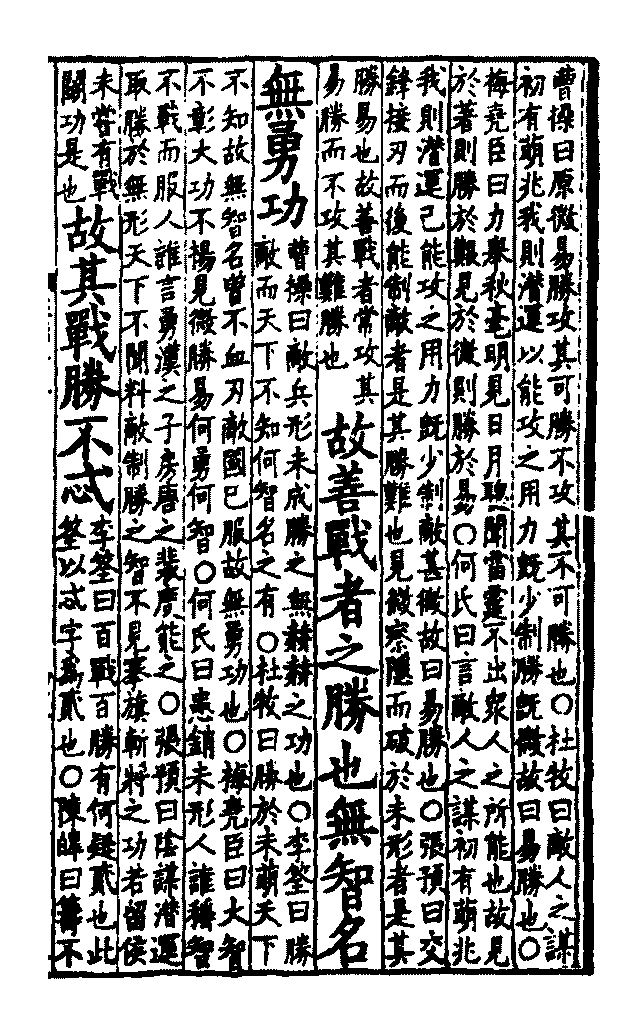 曹操曰原微易勝攻其可勝不攻其不可勝也○杜牧曰敵人之謀
初有萌兆我則潛運以能攻之用力旣少制勝旣微故曰易勝也○
梅堯臣曰力舉秋毫明見日月聰聞雷霆不出衆人之所能也故見
於著則勝於艱見於微則勝於易○何氏曰言敵人之謀初有萌兆
我則潛運已能攻之用力旣少制敵甚微故曰易勝也○張預曰交
鋒接刃而後能制敵者是其勝難也見微察隱而破於未形者是其
勝易也故善戰者常攻其
易勝而不攻其難勝也
故善戰者之勝也無智名
無勇功
曹操曰敵兵形未成勝之無赫赫之功也○李筌曰勝
敵而天下不知何智名之有○杜牧曰勝於未萌天下
不知故無智名曾不血刃敵國已服故無勇功也○梅堯臣曰大智
不彰大功不揚見微勝易何勇何智○何氏曰患銷未形人誰稱智
不戰而服人誰言勇漢之子房唐之裴度能之○張預曰陰謀潛運
取勝於無形天下不聞料敵制勝之智不見搴旗斬將之功若留侯
未嘗有戰
鬭功是也
故其戰勝不忒
李筌曰百戰百勝有何疑貳也此
筌以忒字爲貳也○陳皞曰籌不